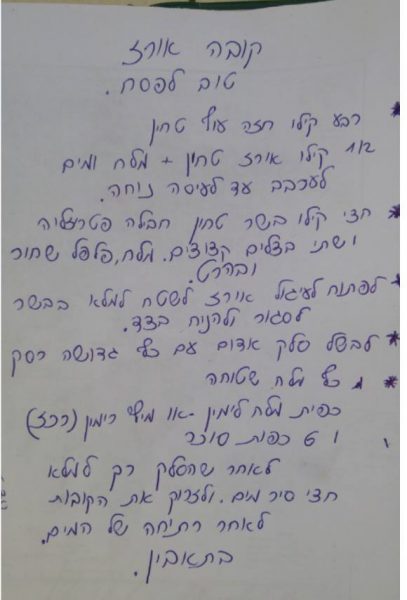 קובה אורז
טוב לפסח.
* רבע קילו חזה עוף טחון
1/2 קילו אורז טחון + מלח ומים
לערבב עד לעיסה נוחה.
* חצי קילו בשר טחון חבילה פטרוזליה
ושתי בצלים קצוצים. מלח, פלפל שחור
ובהרט.
* לפתוח לעיגול אורז לשטח למלא בבשר
לסגור ולהניח בצד.
* לבשל סלק אדום עם כף גדושה רסק
* כף מלח שטוחה
כפית מלח לימון - או מיץ רימון (רכז)
ו 6 כפות סוכר
לאחר שהסלק רק למלא
חצי סיר מים. ולזרוק את הקובות
לאחר רתיחה של המים.
בתאבון.